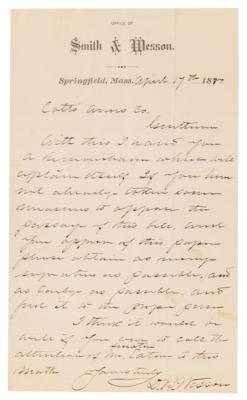 OFFICE OF
Smith & Wesson.
Springfield, Mass. April 17th 1880
Colts Arms Co.
Gentlemen
With this I hand you
a Memorandum which will
explain itself If you have
not already taken some
measures to oppose the
passage of this bill, and
you approve of this paper
please obtain as many
signatures as possible, and
as early as possible, and
put it to the proper
I think it would be
well if you were to call the
senator
attention of Mr. Eaton to this
Matter Yours truly
D. B. Wesson